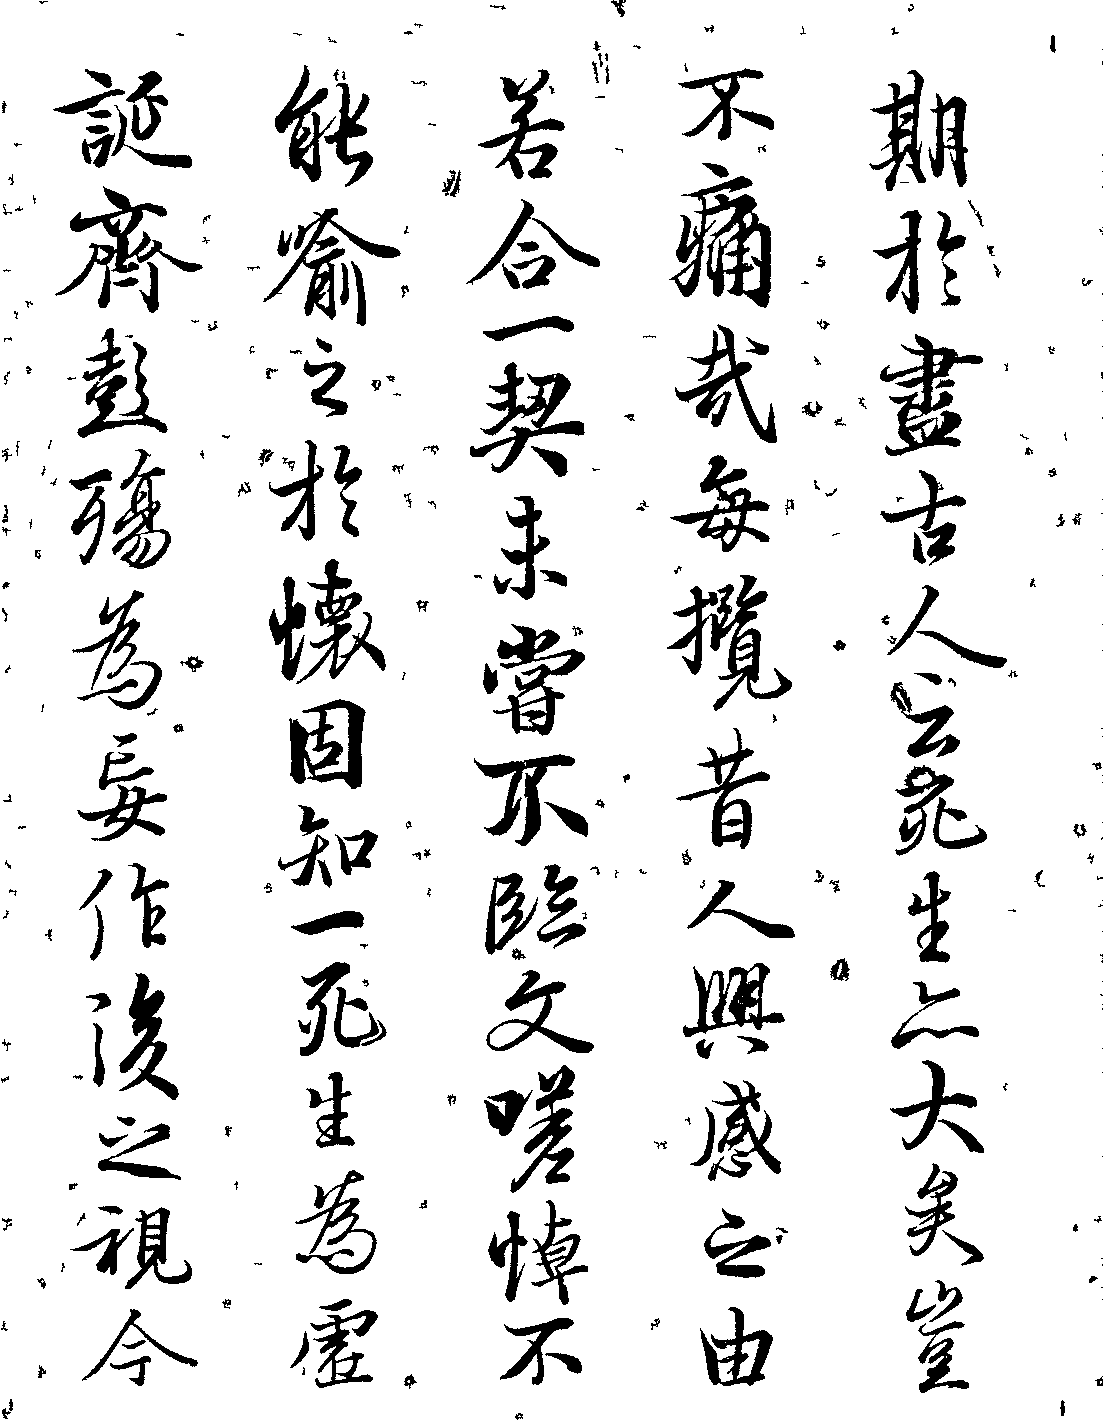 期於盡古人云死生亦大矣豈
不痛哉每攬昔人興感之由
若合一契未嘗不臨文嗟悼不
能喻之於懷固知一死生為虛
誕齊彭殤為妄作後之視今